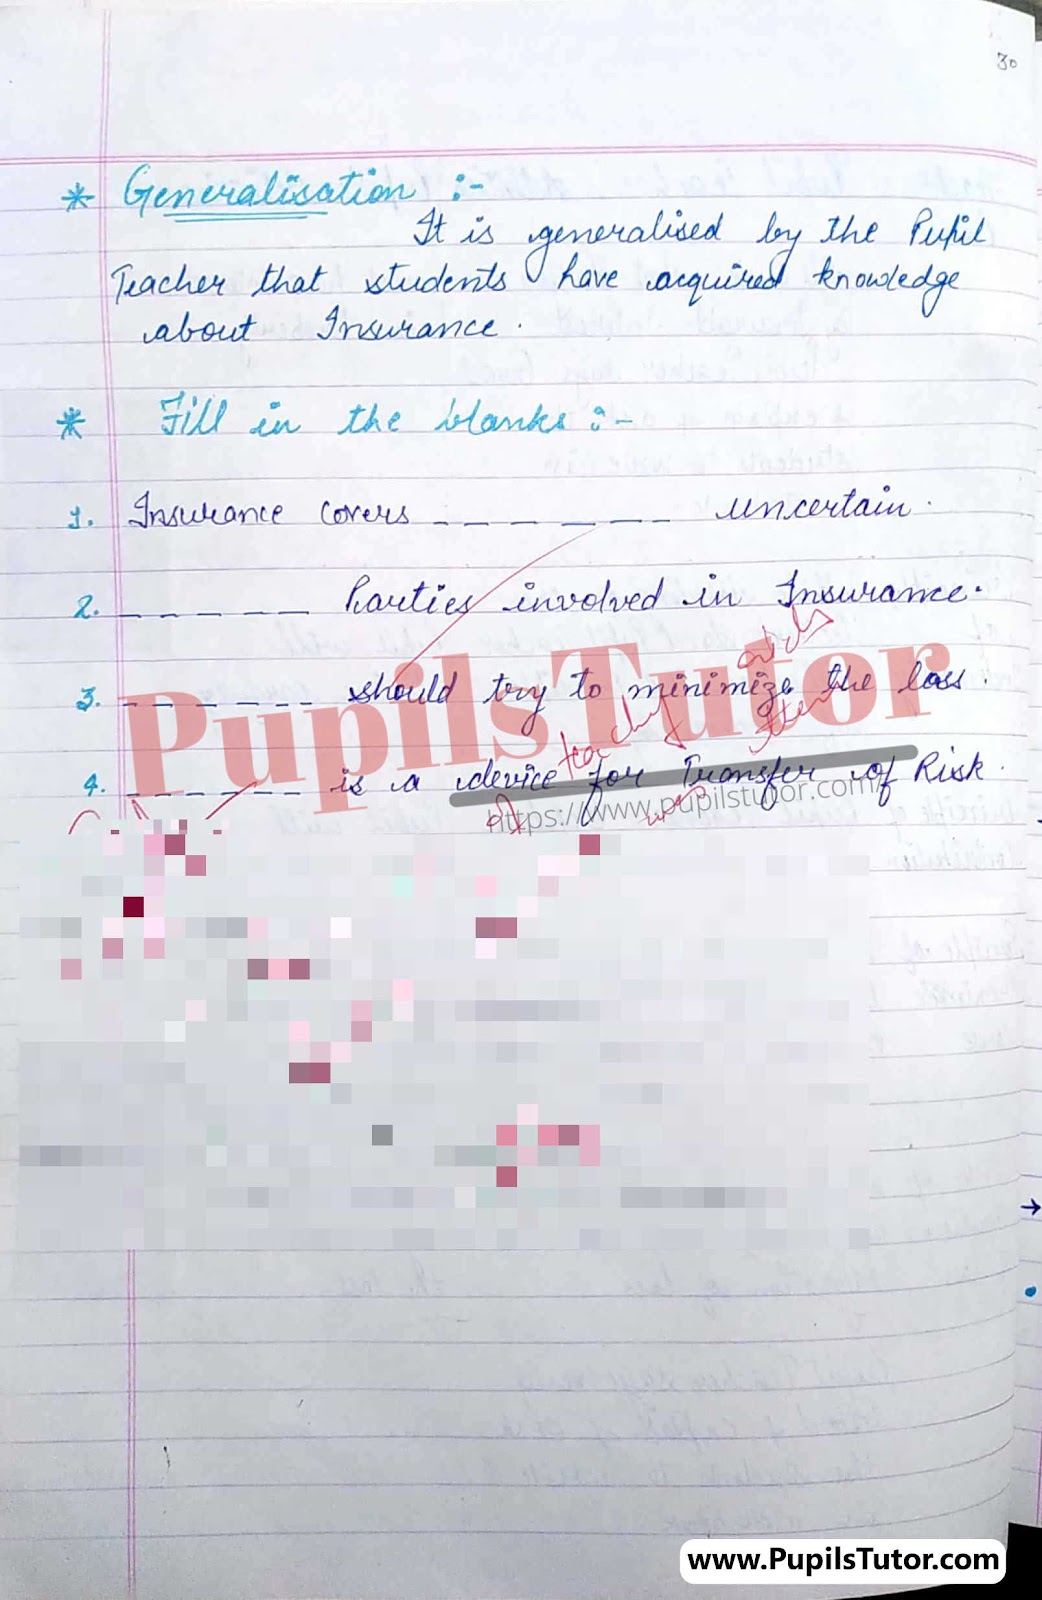 30
* Generalisation :-
It is generalised by the Pupil
Teacher that students have acquired knowledge
about Insurance.
* Fill in the blanks :-
1. Insurance covers _ _ _ _ _ _ uncertain.
2. _ _ _ _ _ Parties involved in Insurance.
3. _ _ _ _ _ _ should try to minimize the loss.
4. _ _ _ _ _ _ is a device for Transfer of Risk.
PupilsTutor
https://www.pupilstutor.com/
www.PupilsTutor.com